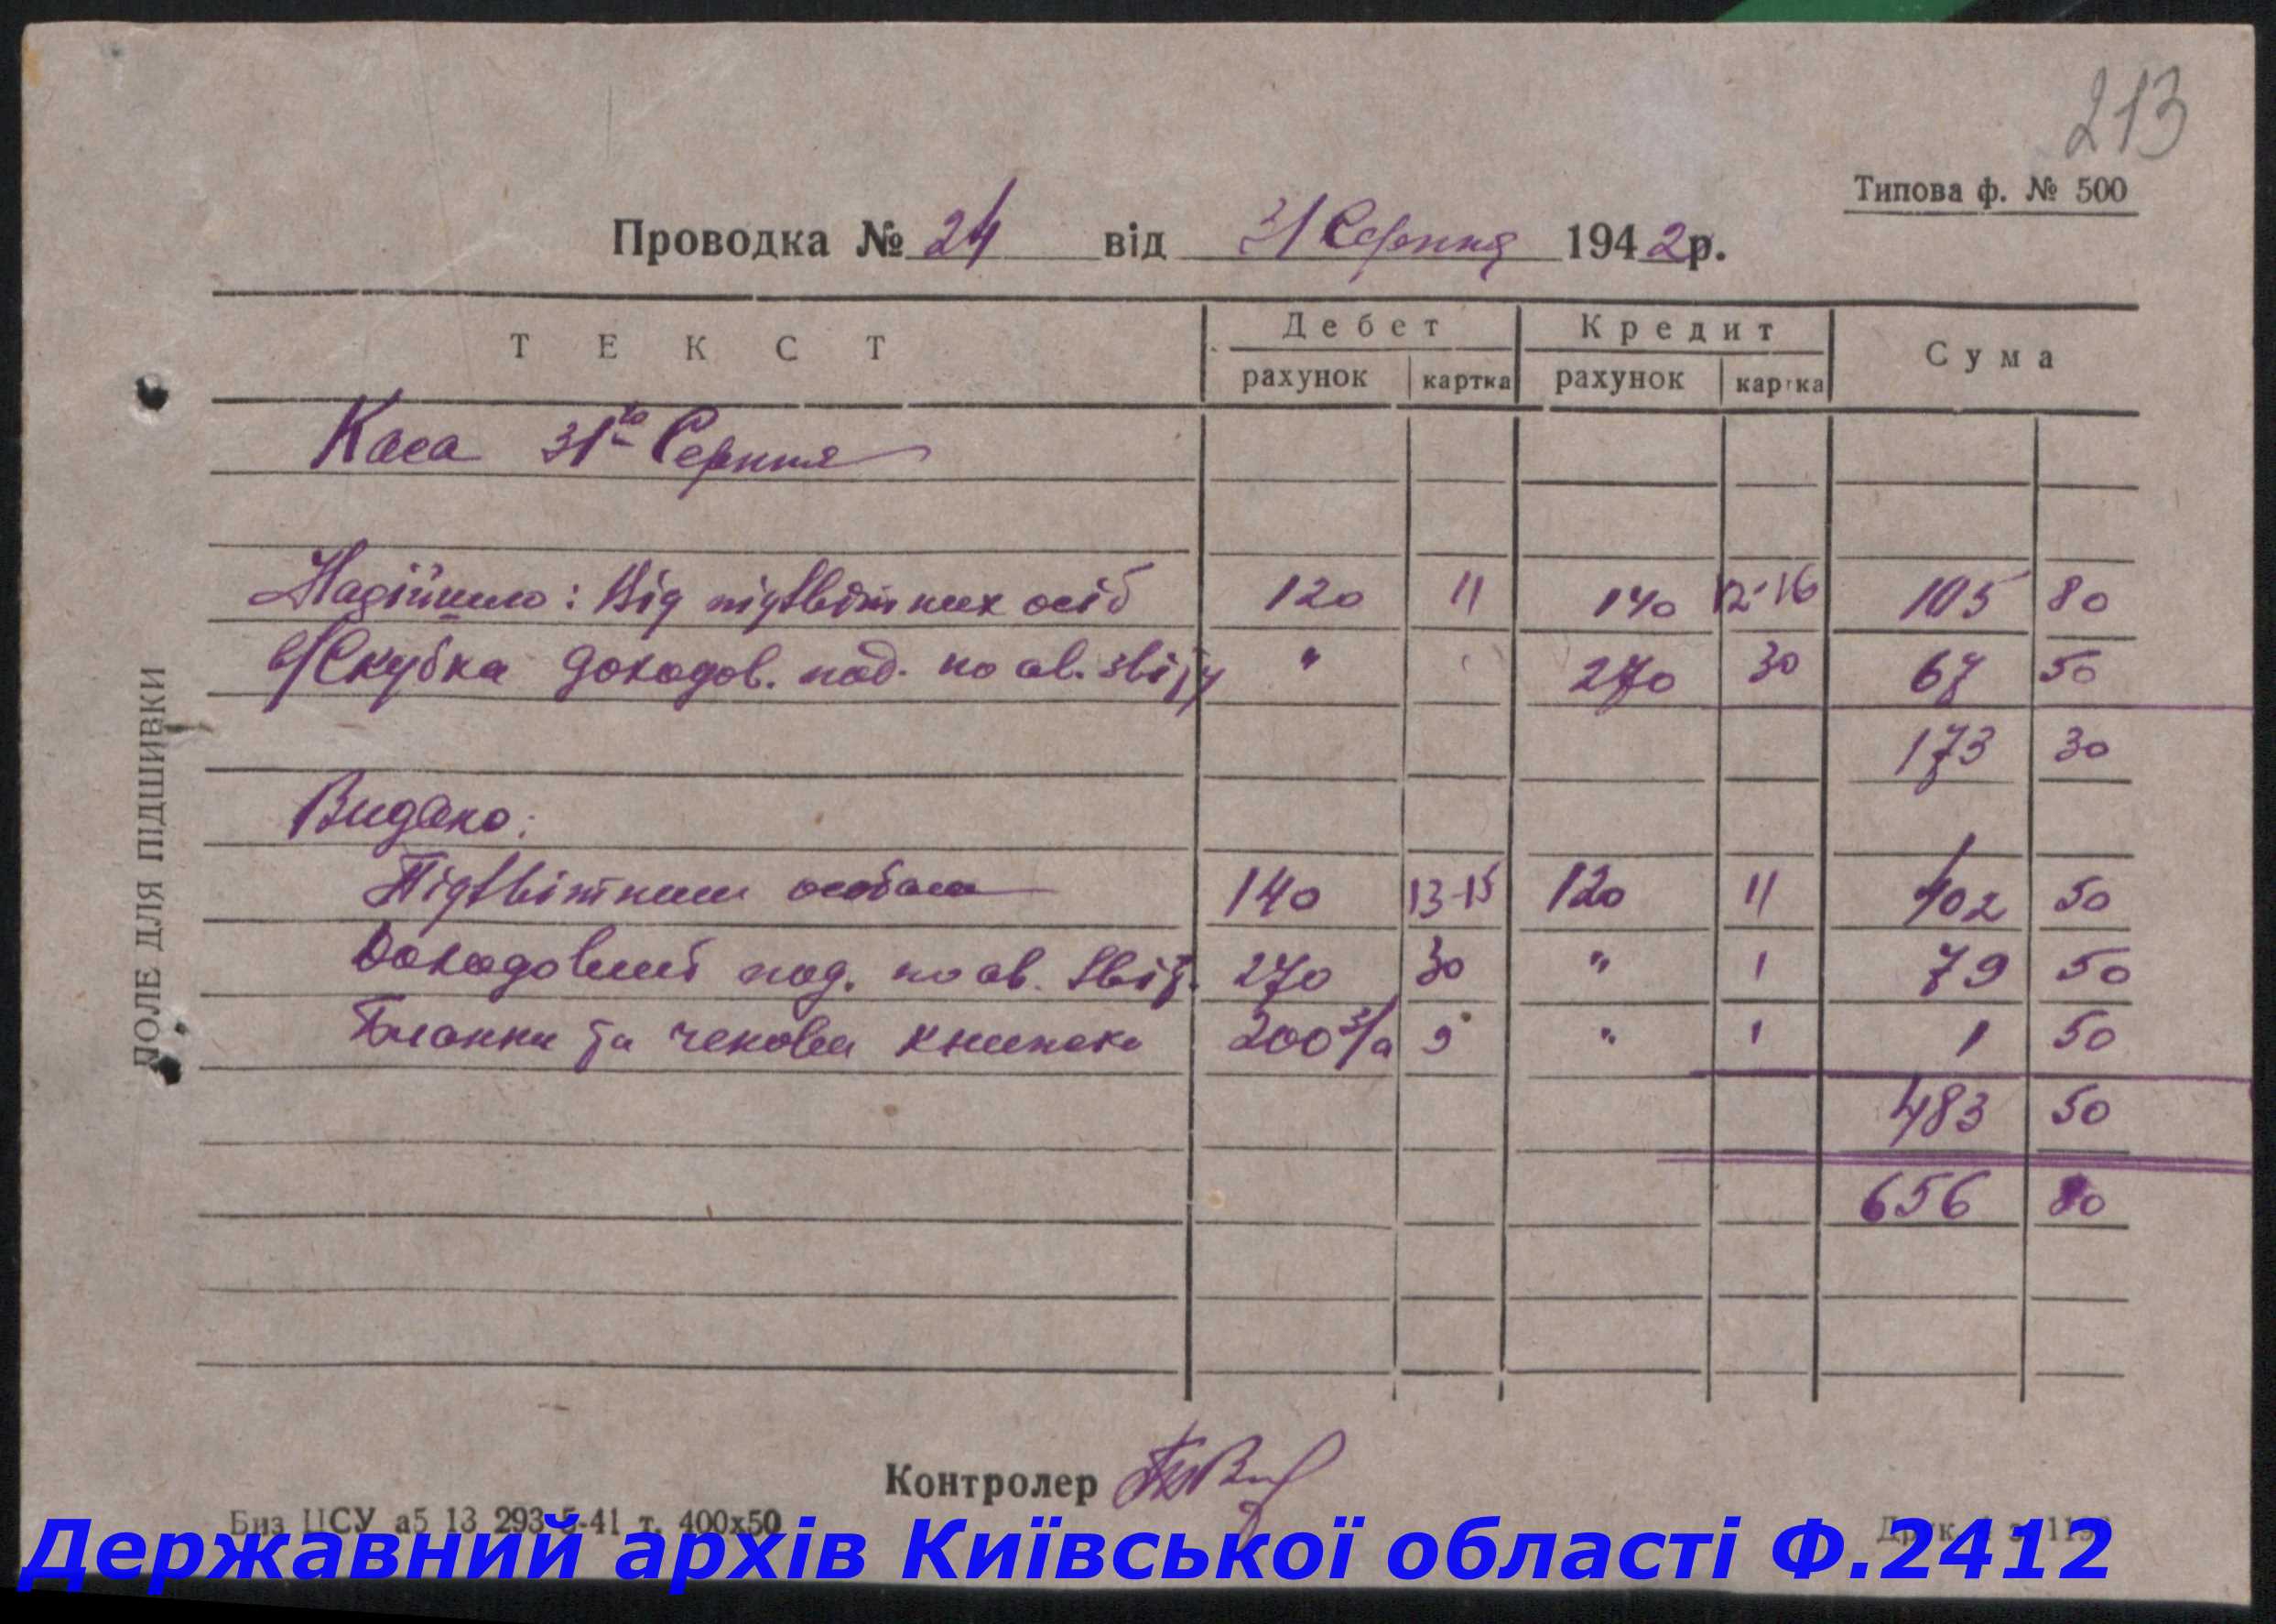 213
Типова ф. № 500
Проводка № 24 від 31 Серпня 1942 р.
ТЕКСТ Дебет Кредит Сума
рахунок картка рахунок картка
Каса 31го Серпня
Надійшло: Від підзвітних осіб 120 11 140 12-16 105 80
доходов. под. по ав. звіту " 270 30 67 50
173 30
Видано:
Підзвітним особам 140 13-15 120 11 402 50
Доходовий под. по ав. звіт. 270 30 " 1 79 50
Бланки та чекові книжки 200 3/а 9 " 1 1 50
483 50
656 80
ПОЛЕ ДЛЯ ПІДШИВКИ
Контролер
Биз ЦСУ а5 13 293 5-41 т. 400х50
Державний архів Київської області Ф.2412